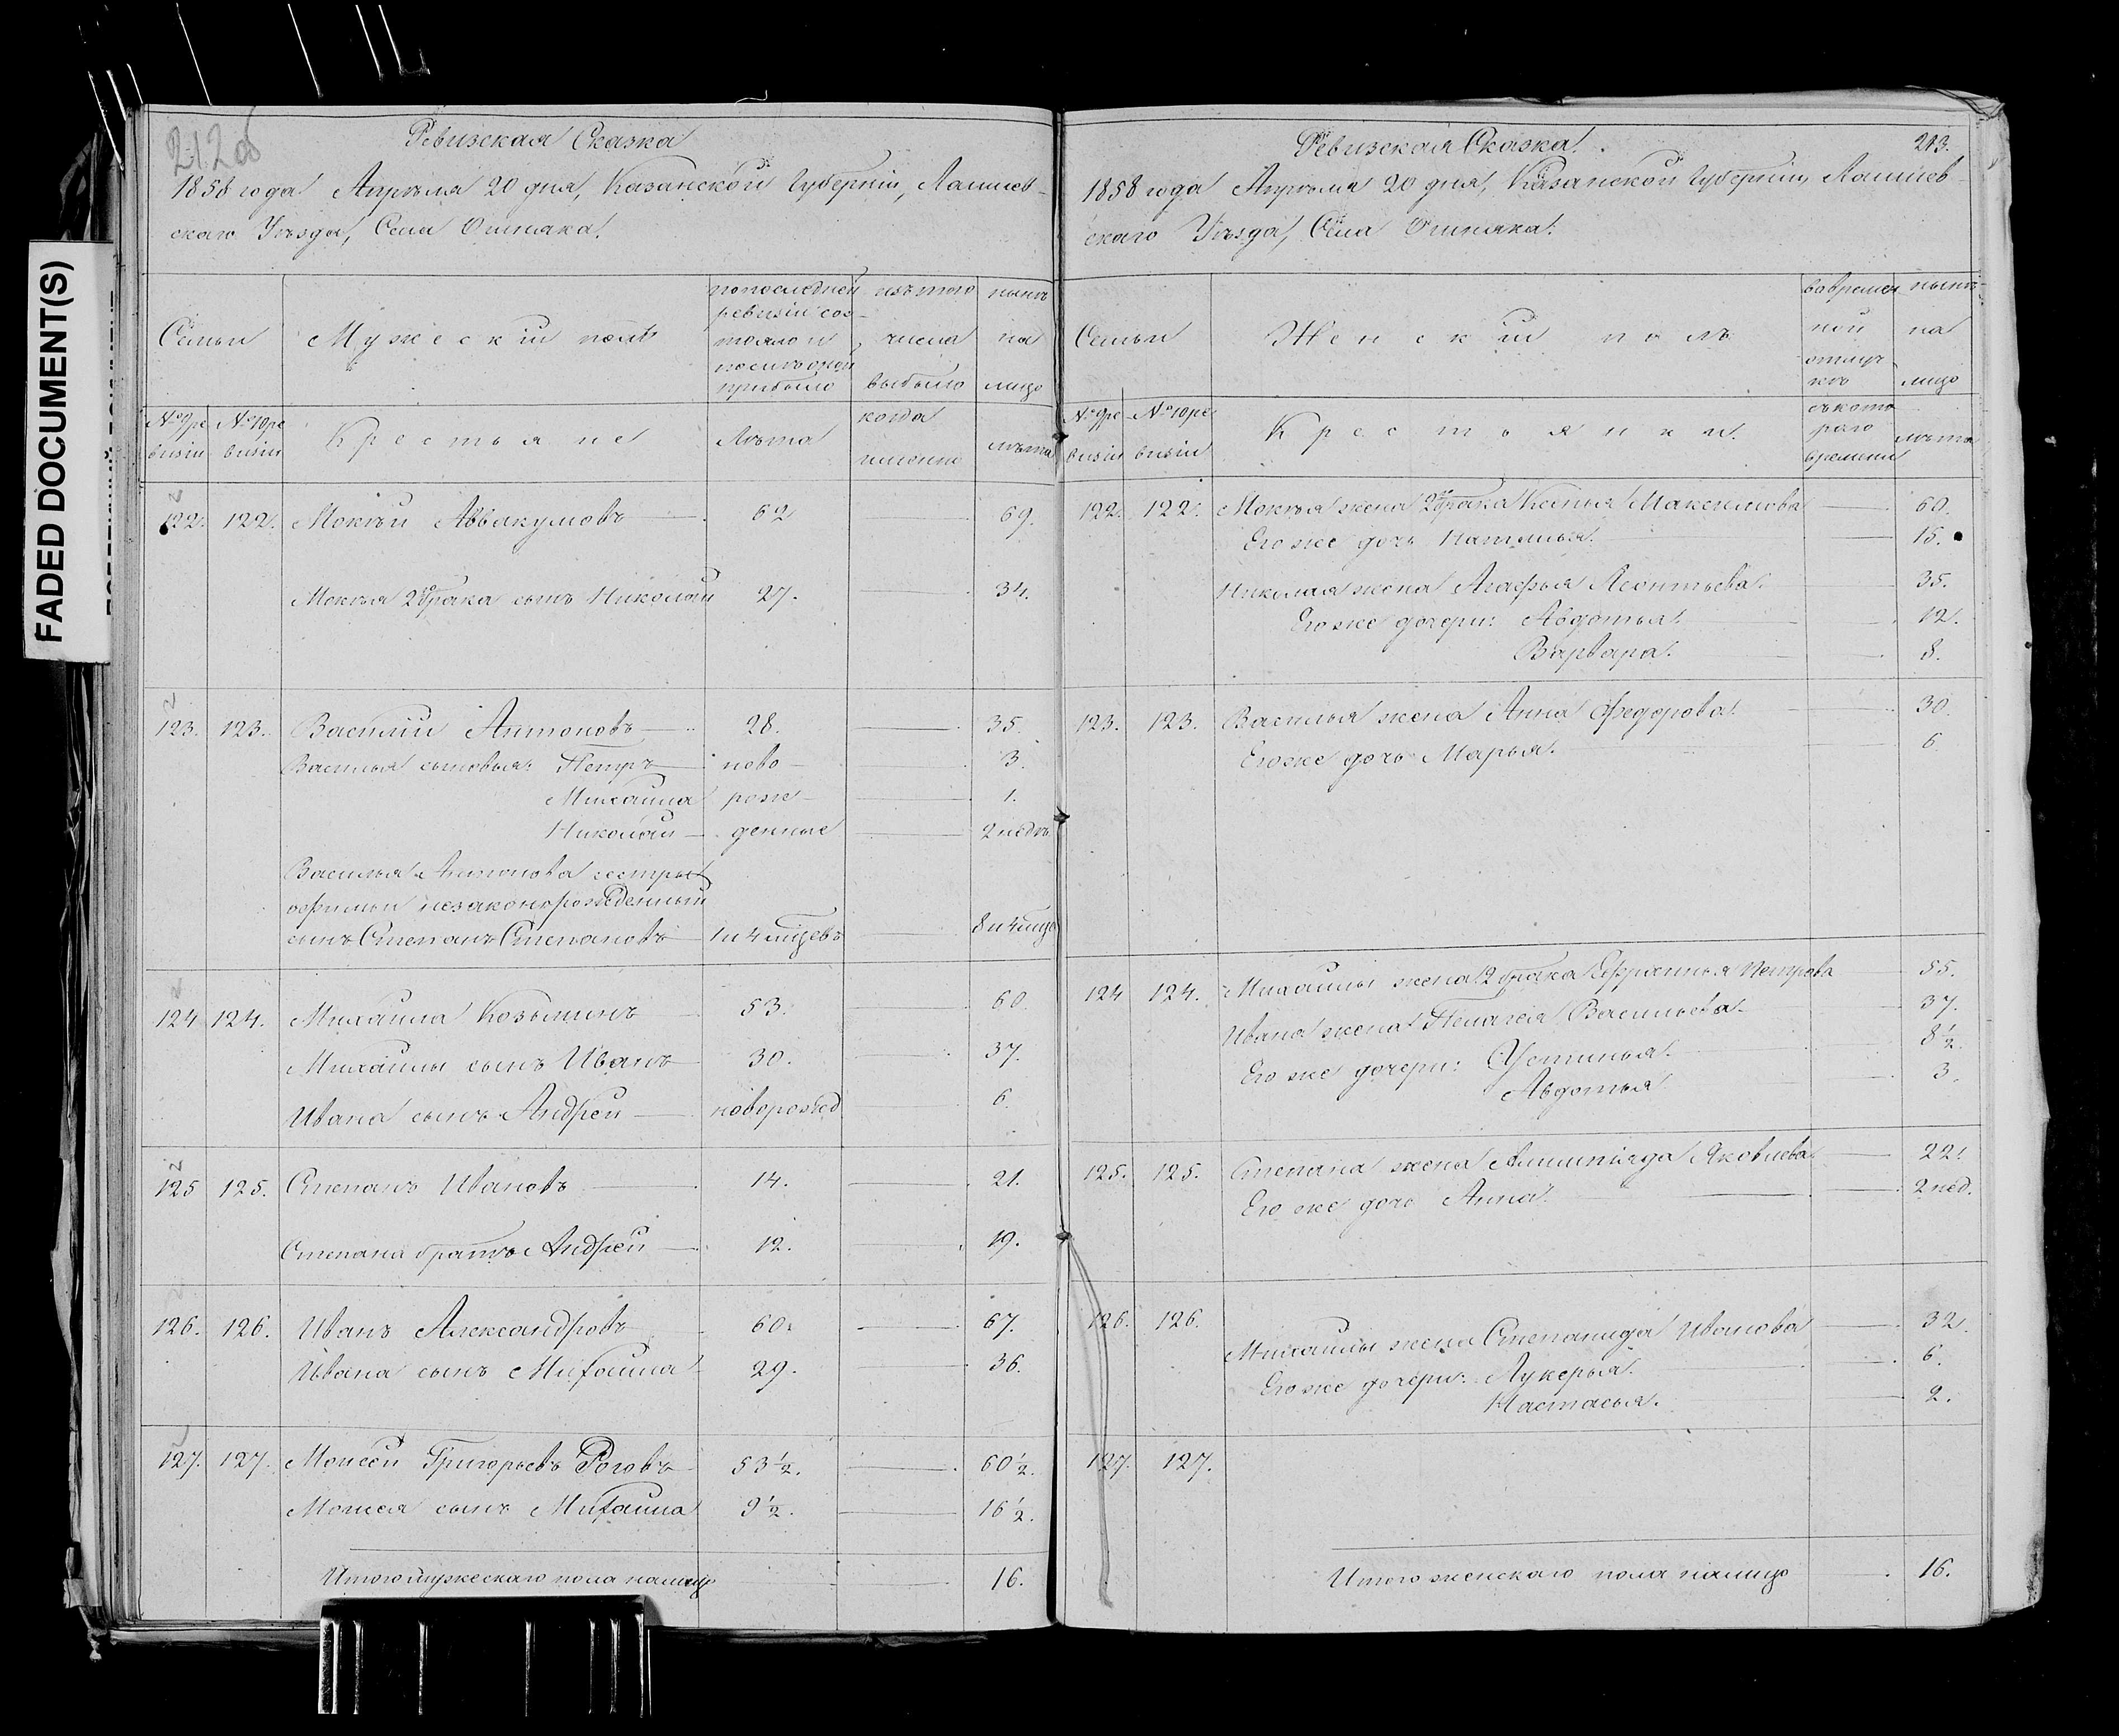 FADED DOCUMENT(S)
212 об
Ревизская Сказка
1858 года Апрѣля 20 дня, Казанской Губерніи, Лаишев-
скаго Уѣзда, Села Ошняка.
Семьи Мужескій полъ по последней ревизіи состояло и после оной прибыло изъ того числа выбыло нынѣ на лицо
№ 9 ревизіи № 10 ревизіи Крестьяне Лѣта когда именно лѣта
122. 122. Мокѣй Аввакумовъ 62 69.
Мокѣя 2 брака сынъ Николай 27. 34.
123. 123. Василій Антоновъ 28. 35.
Василья сыновья: Петръ ново- 3.
Михайла рож- 1.
Николай денные 2 недѣ.
Василья Антонова сестры
Офимьи незаконнорожденный
сынъ Степанъ Степановъ 1 и 4 мцевъ 8 и 4 мца
124 124. Михайла Козьминъ 53. 60
Михайлы сынъ Иванъ 30. 37.
Ивана сынъ Андрей новорожд 6.
125 125. Степанъ Ивановъ 14. 21.
Степана братъ Андрей 12. 19.
126. 126. Иванъ Александровъ 60. 67.
Ивана сынъ Михайла 29. 36.
127. 127. Моисей Григорьевъ Роговъ 53 1/2. 60 1/2.
Моисея сынъ Михайла 9 1/2. 16 1/2.
Итого мужескаго пола налицо 16.
Ревизская Сказка. 213.
1858 года Апрѣля 20 дня, Казанской Губерніи, Лаишев-
скаго Уѣзда, Села Ошняка.
Семьи Женскій полъ во временной отлучкѣ нынѣ на лицо
№ 9 ревизіи № 10 ревизіи Крестьянки. съ котораго времени лѣта
122. 122. Мокѣя жена 2 брака Ксенья Максимова 60.
Его же дочь Наталья. 15.
Николая жена Агафья Леонтьева. 35.
Его же дочери: Авдотья. 12.
Варвара. 8.
123. 123. Василья жена Анна Федорова. 30.
Его же дочь Марья. 6
124 124. Михайлы жена 2 брака Ефросинья Петрова 55.
Ивана жена Пелагея Васильева. 37.
Его же дочери: Устинья. 8 1/2.
Авдотья 3.
125. 125. Степана жена Алимпіяда Яковлева. 22.
Его же дочь Анна. 2 нед.
126. 126. Михайлы жена Степанида Иванова 32.
Его же дочери: Лукерья. 6.
Настасья. 2.
127. 127.
Итого женскаго пола налицо 16.